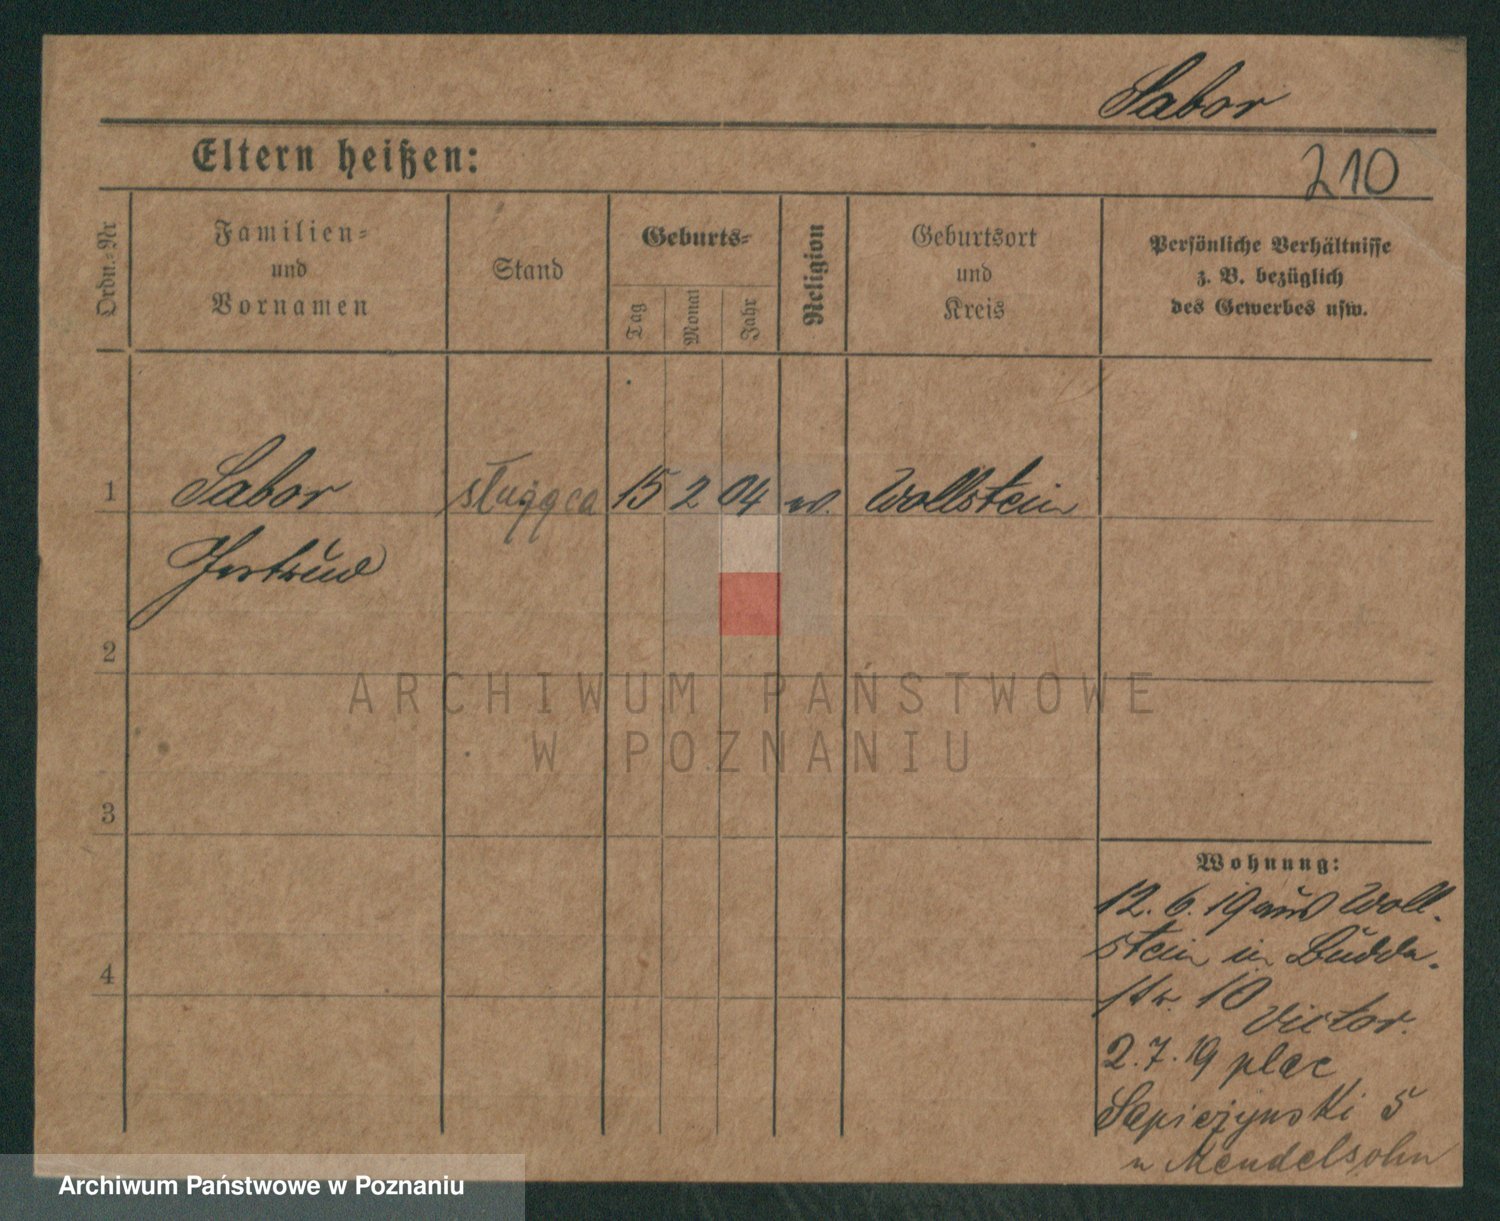 Sabor
Eltern heißen:
210
Ordn.-Nr
Familien-
und
Vornamen
Stand
Geburts-
Tag
Monat
Jahr
Religion
Geburtsort
und
Kreis
Persönliche Verhältnisse
z. B. bezüglich
des Gewerbes usw.
1
Sabor
służąca
15
2
04
w.
Wollstein
Gertrud
2
ARCHIWUM PAŃSTWOWE
W POZNANIU
3
Wohnung:
12. 6. 19 aus Woll-
stein in Budda-
4
str. 10
Victor.
2. 7. 19 plac
Sapieżynski 5
u Mendelsohn
Archiwum Państwowe w Poznaniu